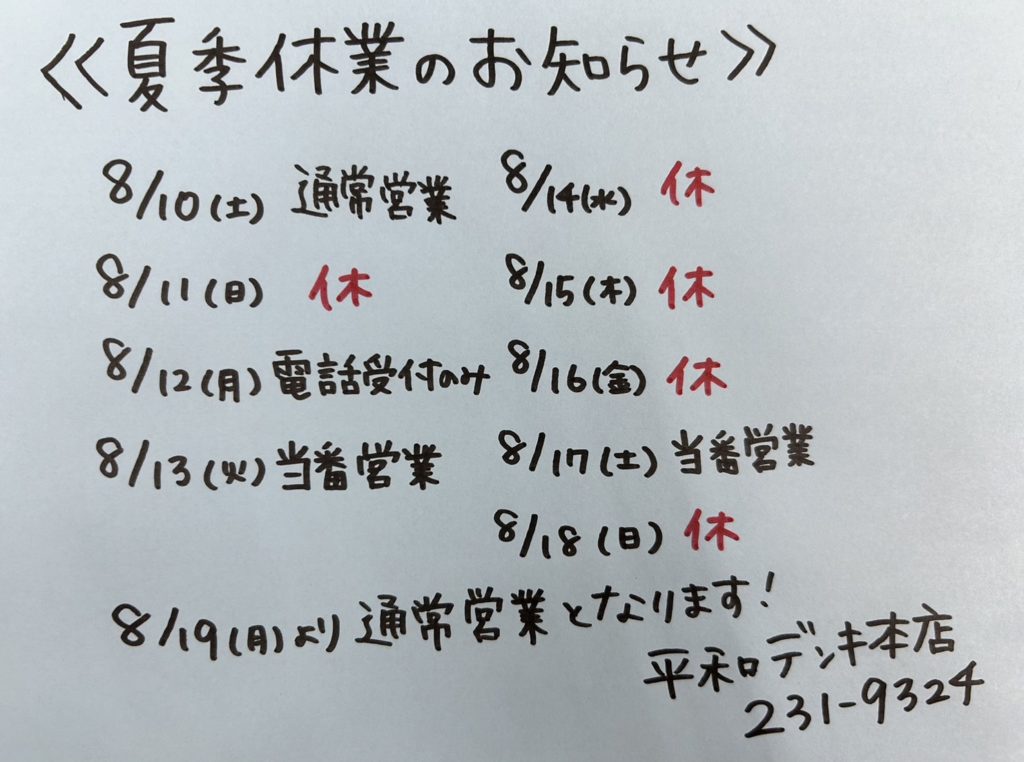 ≪夏季休業のお知らせ≫
8/10(土) 通常営業
8/11(日) 休
8/12(月) 電話受付のみ
8/13(火) 当番営業
8/14(水) 休
8/15(木) 休
8/16(金) 休
8/17(土) 当番営業
8/18(日) 休
8/19(月)より通常営業となります!
平和デンキ本店
231-9324